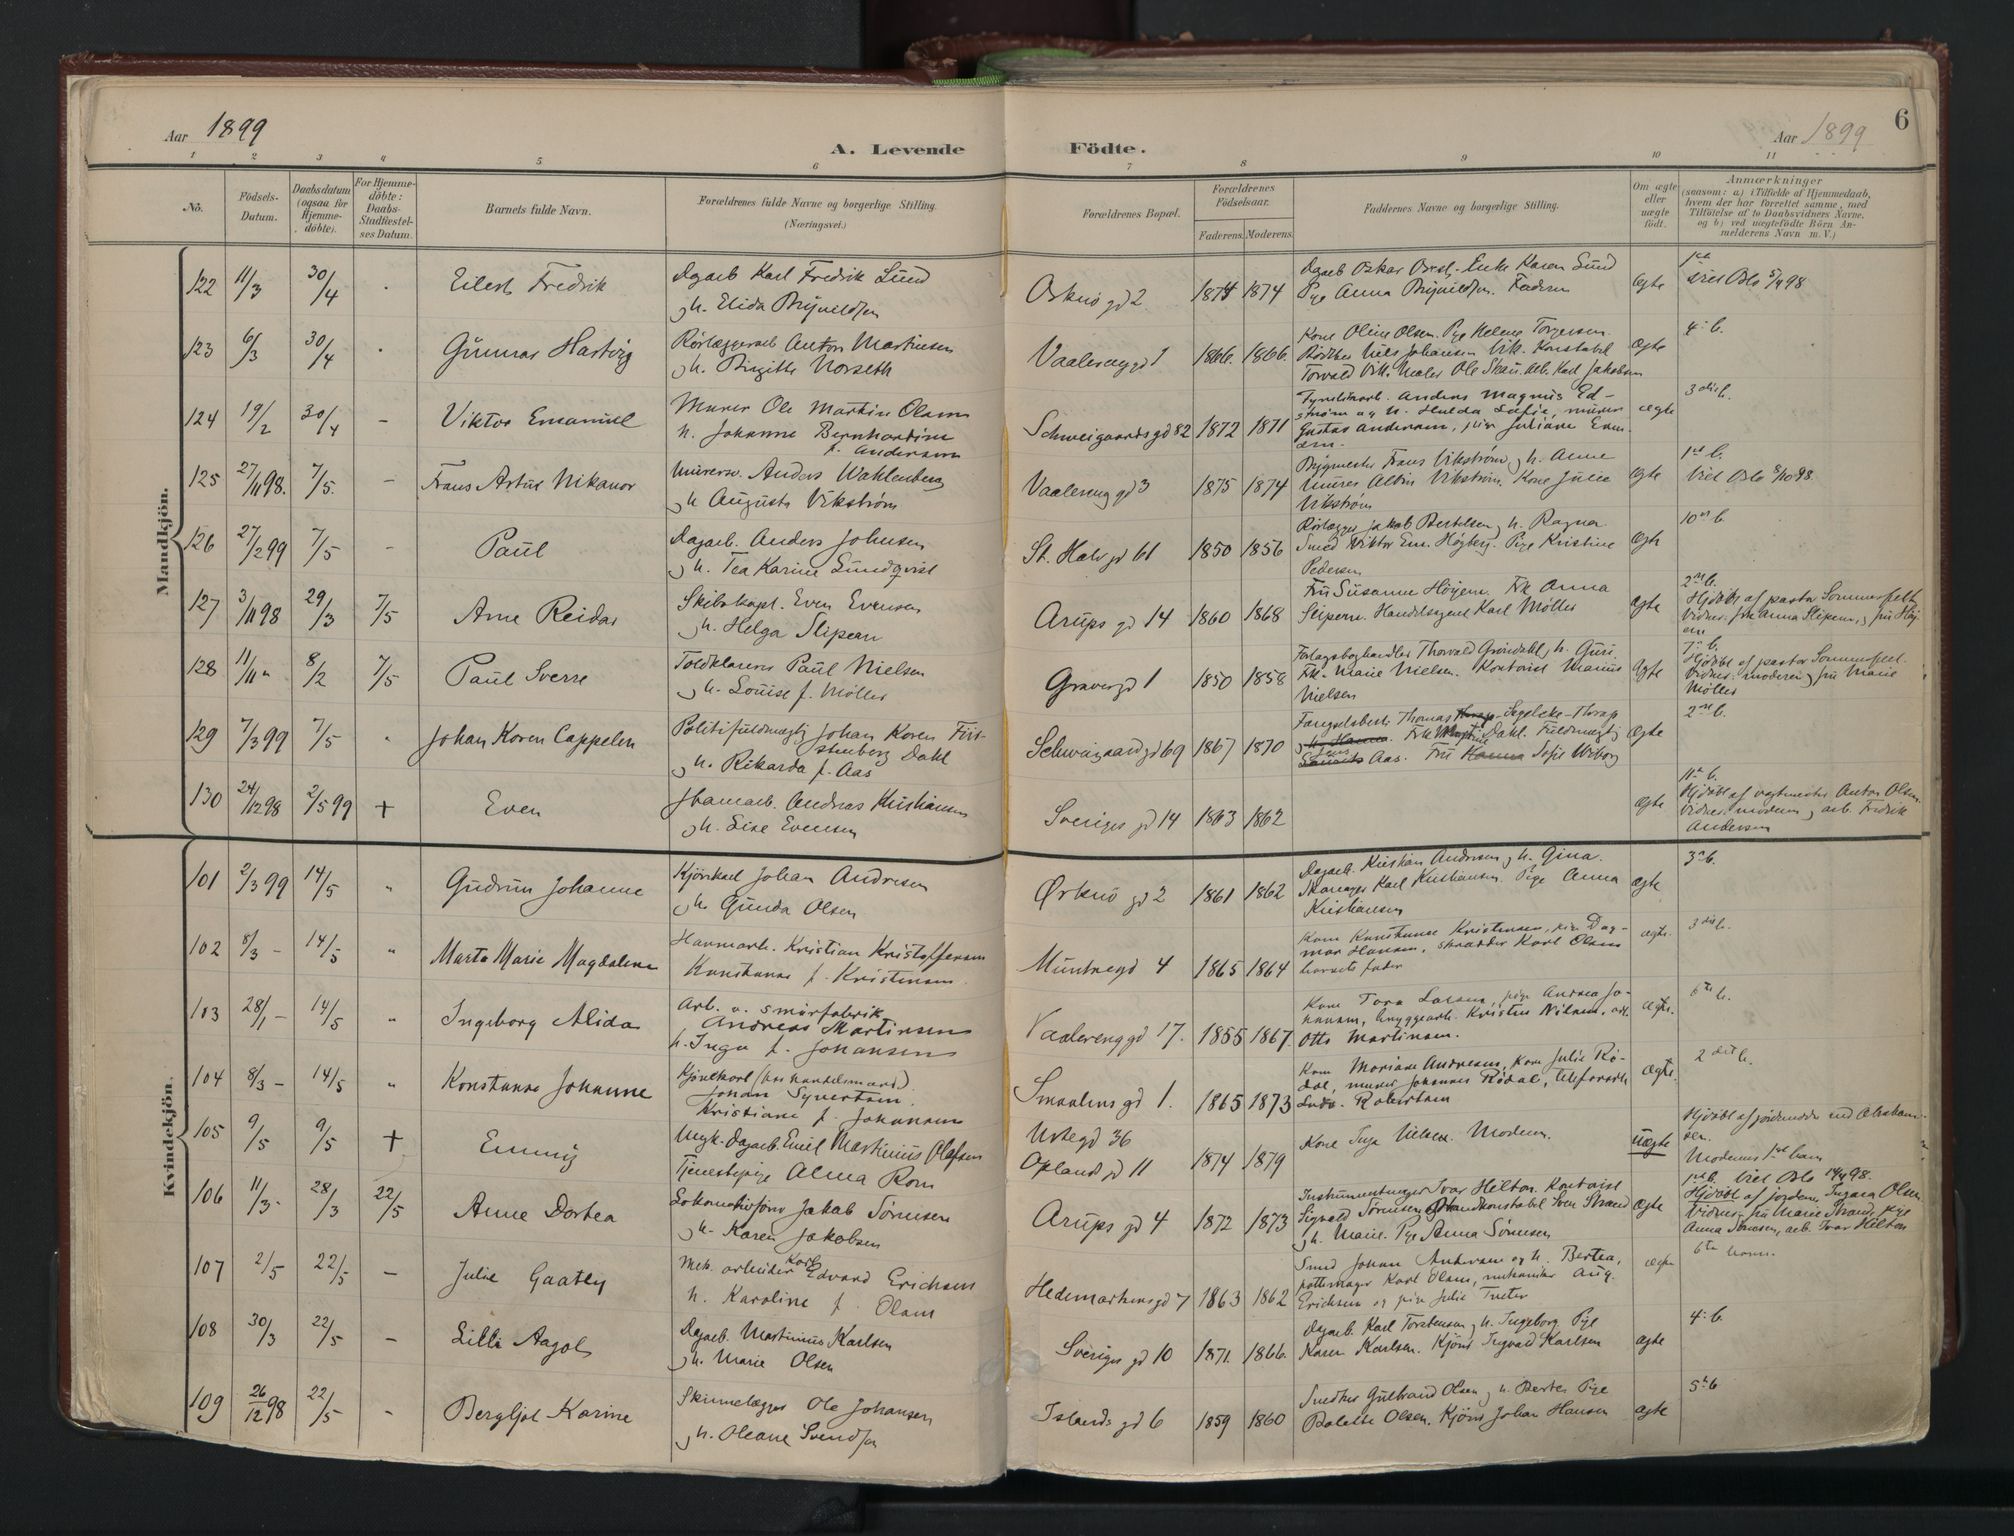 Aar 1899
A. Levende Födte.
Aar 1899
6
1 2 3 4 5 6 7 8 9 10 11
No.
Födsels-
Datum.
Daabsdatum
(ogsaa for
Hjemme-
döbte).
For Hjemme-
döbte:
Daabs-
Stadfæstel-
ses Datum.
Barnets fulde Navn.
Forældrenes fulde Navne og borgerlige Stilling.
(Næringsvei.)
Forældrenes Bopæl.
Forældrenes
Födselsaar.
Faderens. Moderens.
Faddernes Navne og borgerlige Stilling.
Om ægte
eller
uægte
födt.
Anmærkninger
(saasom: a) i Tilfælde af Hjemmedaab,
hvem der har forrettet samme, med
Tilföielse af to Daabsvidners Navne,
og b) ved uægtefödte Börn An-
melderens Navn m. V.)
Mandkjön.
122 11/3 30/4 Eilert Fredrik
Dagarb Karl Fredrik Lund
og h. Elida Brynildsen
Orknö gd 2 1874 1874
Dagarb Oskar Enke Karen Lund
Pige Anna Brynildsen. Faderen
ægte
viet Oslo 5/4 98
123 6/3 30/4 Gunnar Hartvig
Rörlæggerarb Anton Martinsen
og h. Birgitte Norseth
Vaalereng gd 1 1866. 1866.
Kone Oline Olsen. Pige Helene Torgersen.
Niels Johansen Vik. Konstabel
Torvald Vik. Maler Ole Skau. Arb. Karl Jakobsen
ægte
4. b.
124 19/2 30/4 - Viktor Emanuel
Murer Ole Martin Olsen
h. Johanne Bernhardine
f. Andersen
Schweigaards gd 82 1872 1871
Anders Magnus Ed-
ström og h. Hulda Sofie, murer
Gustav Andersen, pige Juliane Even-
sen.
ægte
3die b.
125 27/11 98. 7/5. - Frans Artur Nikanor
Murersv. Anders Wahlenberg
og h. Augusta Vikström
Vaalereng gd 3 1875 1874
Bygmester Frans Vikström og h. Anne
Murer Albin Vikström. Kone Julie
Vikström
ægte
1st b.
Viet Oslo 8/10 98.
126 27/2 99 7/5 - Paul
Dagarb. Anders Johnsen
og h. Tea Karine Lundqvist
St. Halv gd 61 1850 1856
Rörlægger Jakob Bertelsen og h. Ragna.
Smed Viktor Em. Högberg. Pige Kristine
Pedersen
ægte
10de b.
127 3/11 98 29/3 7/5 Arne Reidar
Skibskapt. Even Evensen
og h. Helga Slipern
Arups gd 14 1860 1868
Fru Susanne Höyem. Frk Anna
Slipern. Handelsagent Karl Möller
ægte
2n b.
Hjdöbt af pastor Sommerfelt
Vidner: frk Anna Slipern, og fru Höy-
em
128 11/11 " 8/2 7/5 Paul Sverre
Toldklarerer Paul Nielsen
og h. Louise f. Möller
Graver gd 1 1850 1858
Forlagsboghandler Thorvald Gröndahl og h. Guri.
Frk. Marie Nielsen. Kontorist Marius
Nielsen
ægte
7. b.
Hjdöbt af pastor Sommerfelt.
Vidner: moderen og fru Marie
Möller
129 7/3 99 7/5 " Johan Koren Cappelen
Politifuldmægtig Johan Koren Fürs-
tenberg Dahl
og h. Rikarda f. Aas
Schweigaard gd 69 1867 1870
Fængselsbest. Thomas Segelcke-Thrap
Dahl. Fuldmægtig
Aas. Fru Sofie Wiborg
ægte
2n b.
130 24/12 98 2/5 99 + Even
Andreas Kristiansen
og h. Lise Evensen
Sveriges gd 14 1863 1862
ægte
11te b.
Hjdöbt af vagtmester Anton Olsen.
Vidner: moderen og arb. Fredrik
Andersen
Kvindekjön.
101 2/3 99 14/5 " Gudrun Johanne
Kjörekarl Johan Andresen
og h. Gunda Olsen
Ørknö gd 2 1861 1862
Dagarb. Kristian Andresen og h. Gina.
Karl Kristiansen. Pige Anna
Kristiansen
ægte
3. b.
102 8/3 - 14/5 " Marta Marie Magdalene
Havnearb. Kristian Kristoffersen
Konstanse f. Kristensen.
Munkegd 4 1865 1864
Kone Konstanse Kristensen, pige Dag-
mar Hansen, skrædder Karl Olsen
barnets fader
ægte.
3die b.
103 28/1 - 14/5 " Ingeborg Alida
Arb. v. smörfabrik
Andreas Martinsen
h. Inga f. Johansen
Vaalereng gd 17. 1855 1867.
Kone Tora Larsen, pige Andrea Jo-
hansen, bryggearb. Kristen Nilsen, arb.
Otto Martinsen.
ægte.
6te b.
104 8/3 - 14/5 " Konstanse Johanne
Kjörekarl (hos handelsmand).
Johan Syvertsen.
Kristiane f. Johansen
Smaalens gd 1. 1865 1873
Kone Mariane Andresen, kone Julie Rö-
dal, murer Johannes Rödal, telefonarb
Ludv. Robertsen
ægte.
2det b.
105 9/5 9/5 + Emmy
Ungk. Dagarb Emil Martinius Olafsen
Tjenestepige Alma Rom
Urtegd 36
Opland gd 11 1874 1879
Kone Inga Nielsen. Moderen.
uægte
Hjdöbt af jordemoder Abraham-
sen.
Moderens 1st barn
106 11/3 - 28/3 22/5 Anne Dortea
Lokomotivförer Jakob Sörensen
og h. Karen Jakobsen
Arups gd 4 1872 1873
Instrumentmager Ivar Hilton. Kontorist
Sigvald Sörensen. Brandkonstabel Sven Strand
og h. Marie. Pige Anna Sörensen
ægte
1st b. Viet Oslo 14/4 98.
Hjdöbt af jordem. Ingara Olsen
Vidner: fru Marie Strand, Pige
Anna Sörensen, arb. Ivar Hilton
107 2/5 22/5 - Julie Gaatby
Mek. arbeider Karl Edvard Erichsen
h. Karoline f. Olsen
Hedemarkens gd 7 1863 1862
Smed Johan Andersen og h. Bertea,
pottemager Karl Olsen, mekaniker Aug.
Erichsen og pige Julie
ægte
6te barn.
108 30/3 22/5 - Lilli Aagot
Dagarb. Martinius Karlsen
og h. Marie Olsen
Sveriges gd 10 1871. 1866.
Dagarb. Karl Torstensen og h. Ingeborg. Pige
Karen Karlsen. Kjörer Ingvald Karlsen
ægte
4. b.
109 26/12 98 22/5 - Bergljot Karine
Skinnelægger Ole Johansen
og h. Oleane Svendsen
Islands gd 6 1859 1860
Snedker Gulbrand Olsen og h. Berte. Pige
Bolette Olsen. Kjörer Johan Hansen
ægte
5te b